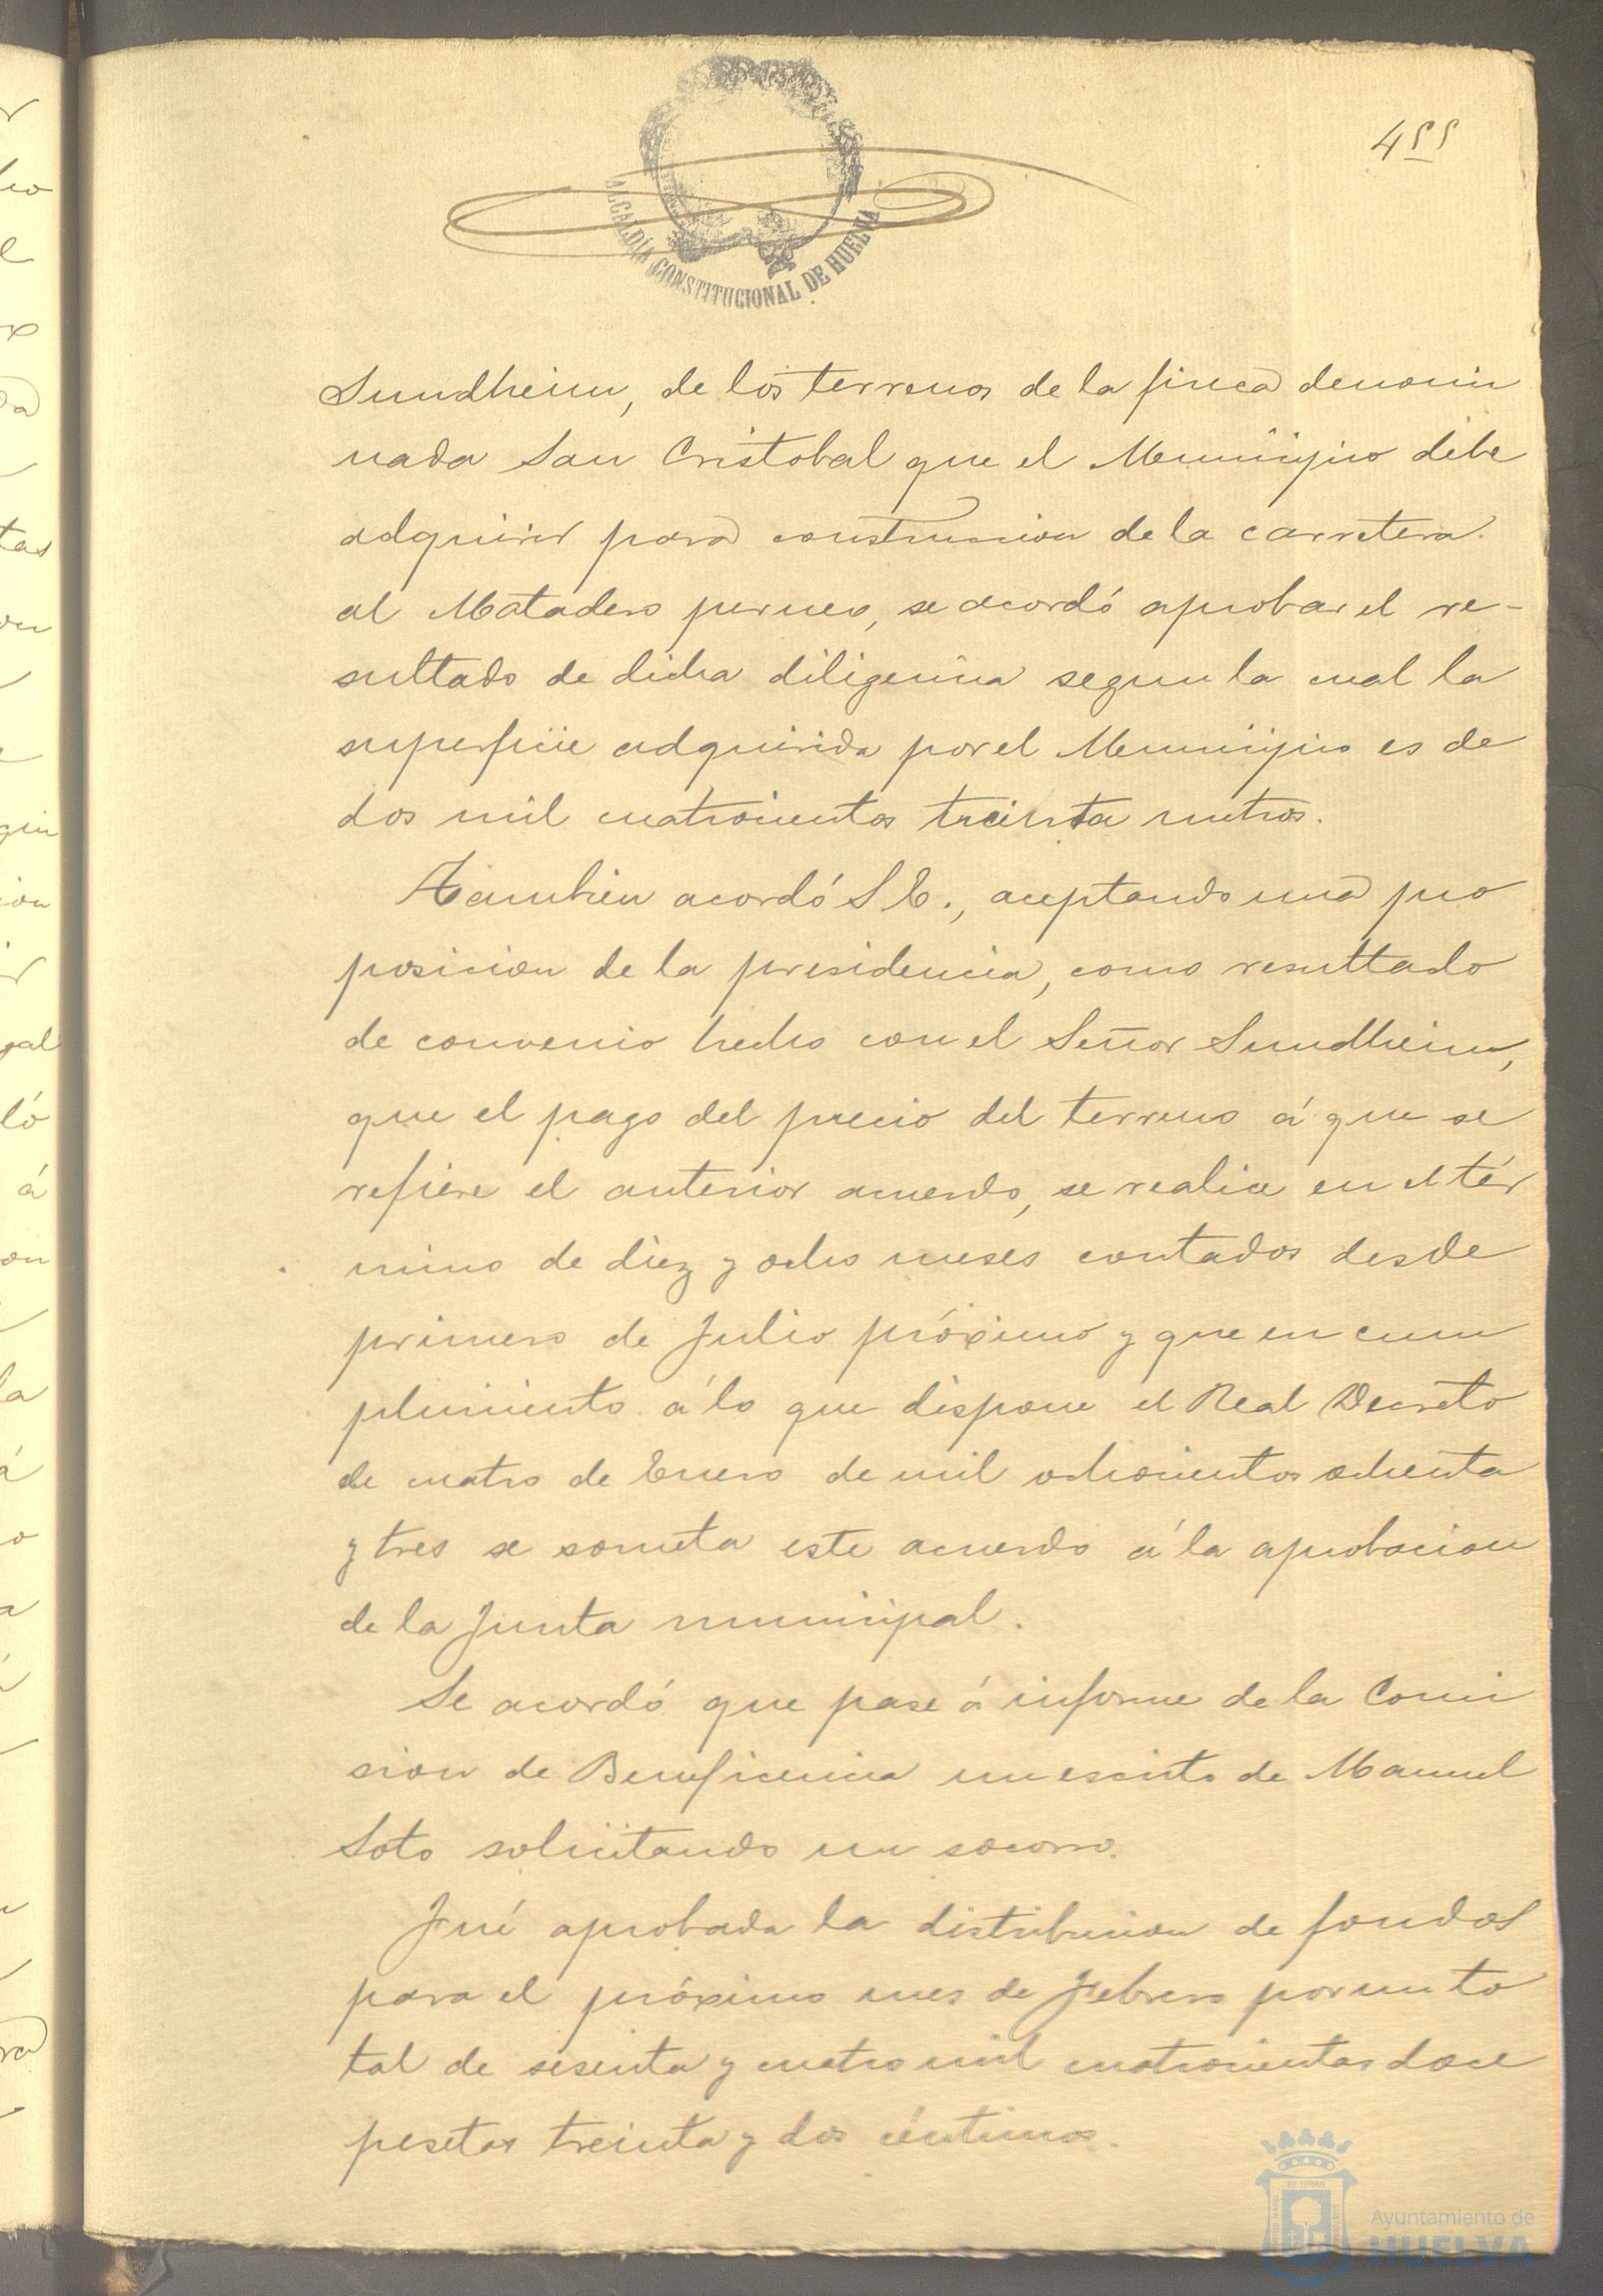 455
ALCALDÍA CONSTITUCIONAL DE HUELVA
Sundheim, de los terrenos de la finca denomi
nada San Cristobal que el Municipio debe
adquirir para construccion de la carretera
al Matadero perneo, se acordó aprobar el re-
sultado de dicha diligencia segun la cual la
superficie adquirida por el Municipio es de
dos mil cuatrocientos treinta metros.
Tambien acordó S E., aceptando una pro
posicion de la presidencia, como resultado
de convenio hecho con el Señor Sundheim,
que el pago del precio del terreno á que se
refiere el anterior acuerdo, se realice en el tér
mino de diez y ocho meses contados desde
primero de Julio próximo y que en cum
plimiento á lo que dispone el Real Decreto
de cuatro de Enero de mil ochocientos ochenta
y tres se someta este acuerdo á la aprobacion
de la Junta municipal.
Se acordó que pase á informe de la Comi
sion de Beneficencia un escrito de Manuel
Soto solicitando un socorro.
Fué aprobada la distribucion de fondos
para el próximo mes de Febrero por un to
tal de sesenta y cuatro mil cuatrocientas doce
pesetas treinta y dos céntimos.
Ayuntamiento de
HUELVA